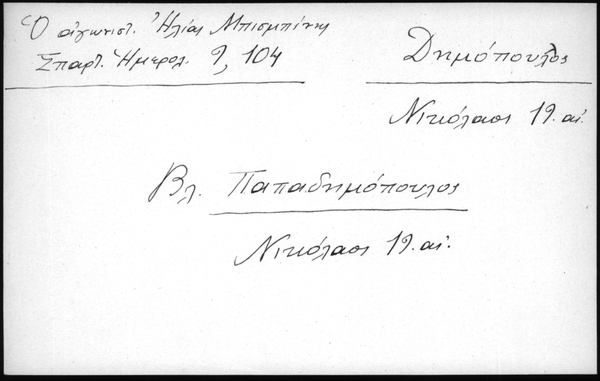 Ὁ ἀγωνιστ. Ἠλίας Μπισμπίνης
Σπαρτ. Ἡμερολ. 9, 104
Δημόπουλος
Νικόλαος 19. αἰ.
Βλ. Παπαδημόπουλος
Νικόλαος 19. αἰ.